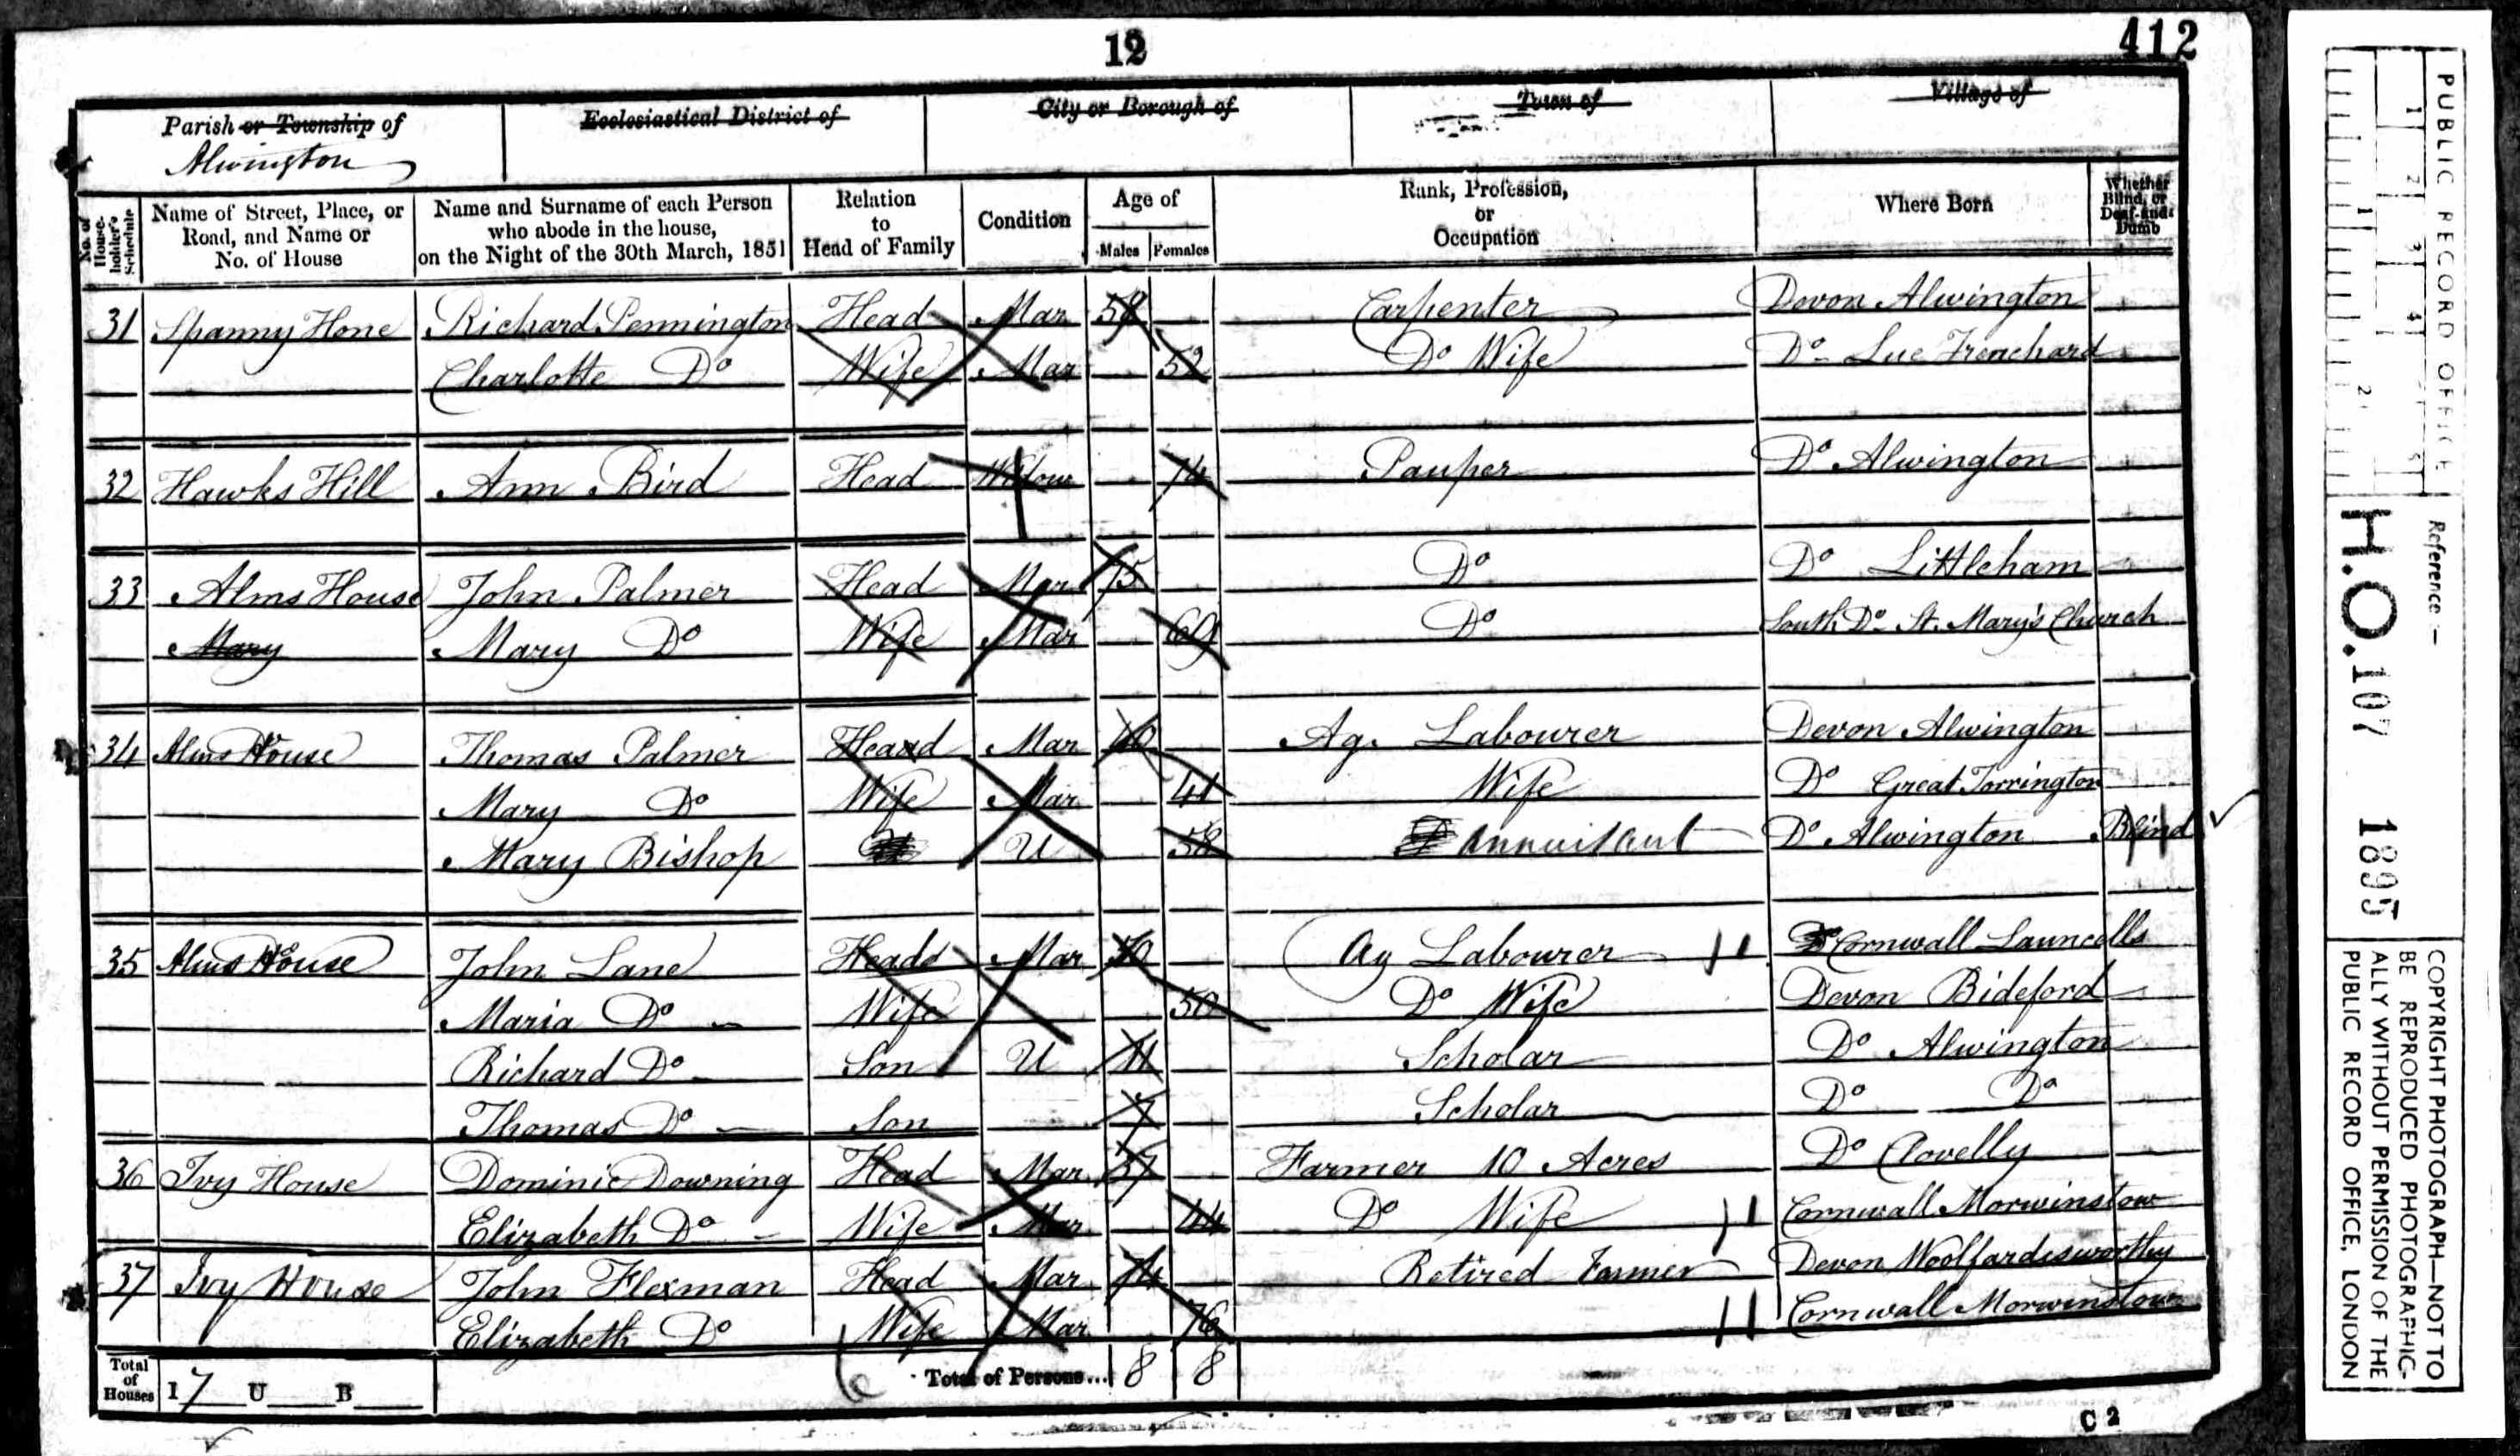 12
412
Parish or Township of
Alwington
Ecclesiastical District of
City or Borough of
Town of
Village of
No. of House-holder's Schedule
Name of Street, Place, or Road, and Name or No. of House
Name and Surname of each Person who abode in the house, on the Night of the 30th March, 1851
Relation to Head of Family
Condition
Age of
Males Females
Rank, Profession, or Occupation
Where Born
Whether Blind, or Deaf-and-Dumb
31 Spanny Hone Richard Pennington Head Mar Carpenter Devon Alwington
Charlotte Do Wife Mar 52 Do Wife Do Lue Trenchard
32 Hawks Hill Ann Bird Head Widow 74 Pauper Do Alwington
33 Alms House John Palmer Head Mar 75 Do Do Littleham
Mary Mary Do Wife Mar 69 Do South Do St. Mary's Church
34 Alms House Thomas Palmer Head Mar 40 Ag. Labourer Devon Alwington
Mary Do Wife Mar 41 Wife Do Great Torrington
Mary Bishop U 58 Annuitant Do Alwington Blind
35 Alms House John Lane Head Mar 50 Ag Labourer Cornwall Launcells
Maria Do Wife 50 Do Wife Devon Bideford
Richard Do Son U 11 Scholar Do Alwington
Thomas Do Son 7 Scholar Do Do
36 Ivy House Dominic Downing Head Mar 37 Farmer 10 Acres Do Clovelly
Elizabeth Do Wife Mar 44 Do Wife Cornwall Morwinstow
37 Ivy House John Flexman Head Mar 74 Retired Farmer Devon Woolfardisworthy
Elizabeth Do Wife Mar 76 Cornwall Morwinstow
Total of Houses I 7 U B
6
Total of Persons... 8 8
C 2
PUBLIC RECORD OFFICE
1 2 3 4 5
1 2
Reference:-
H.O. 107 1895
COPYRIGHT PHOTOGRAPH—NOT TO
BE REPRODUCED PHOTOGRAPHIC-
ALLY WITHOUT PERMISSION OF THE
PUBLIC RECORD OFFICE, LONDON